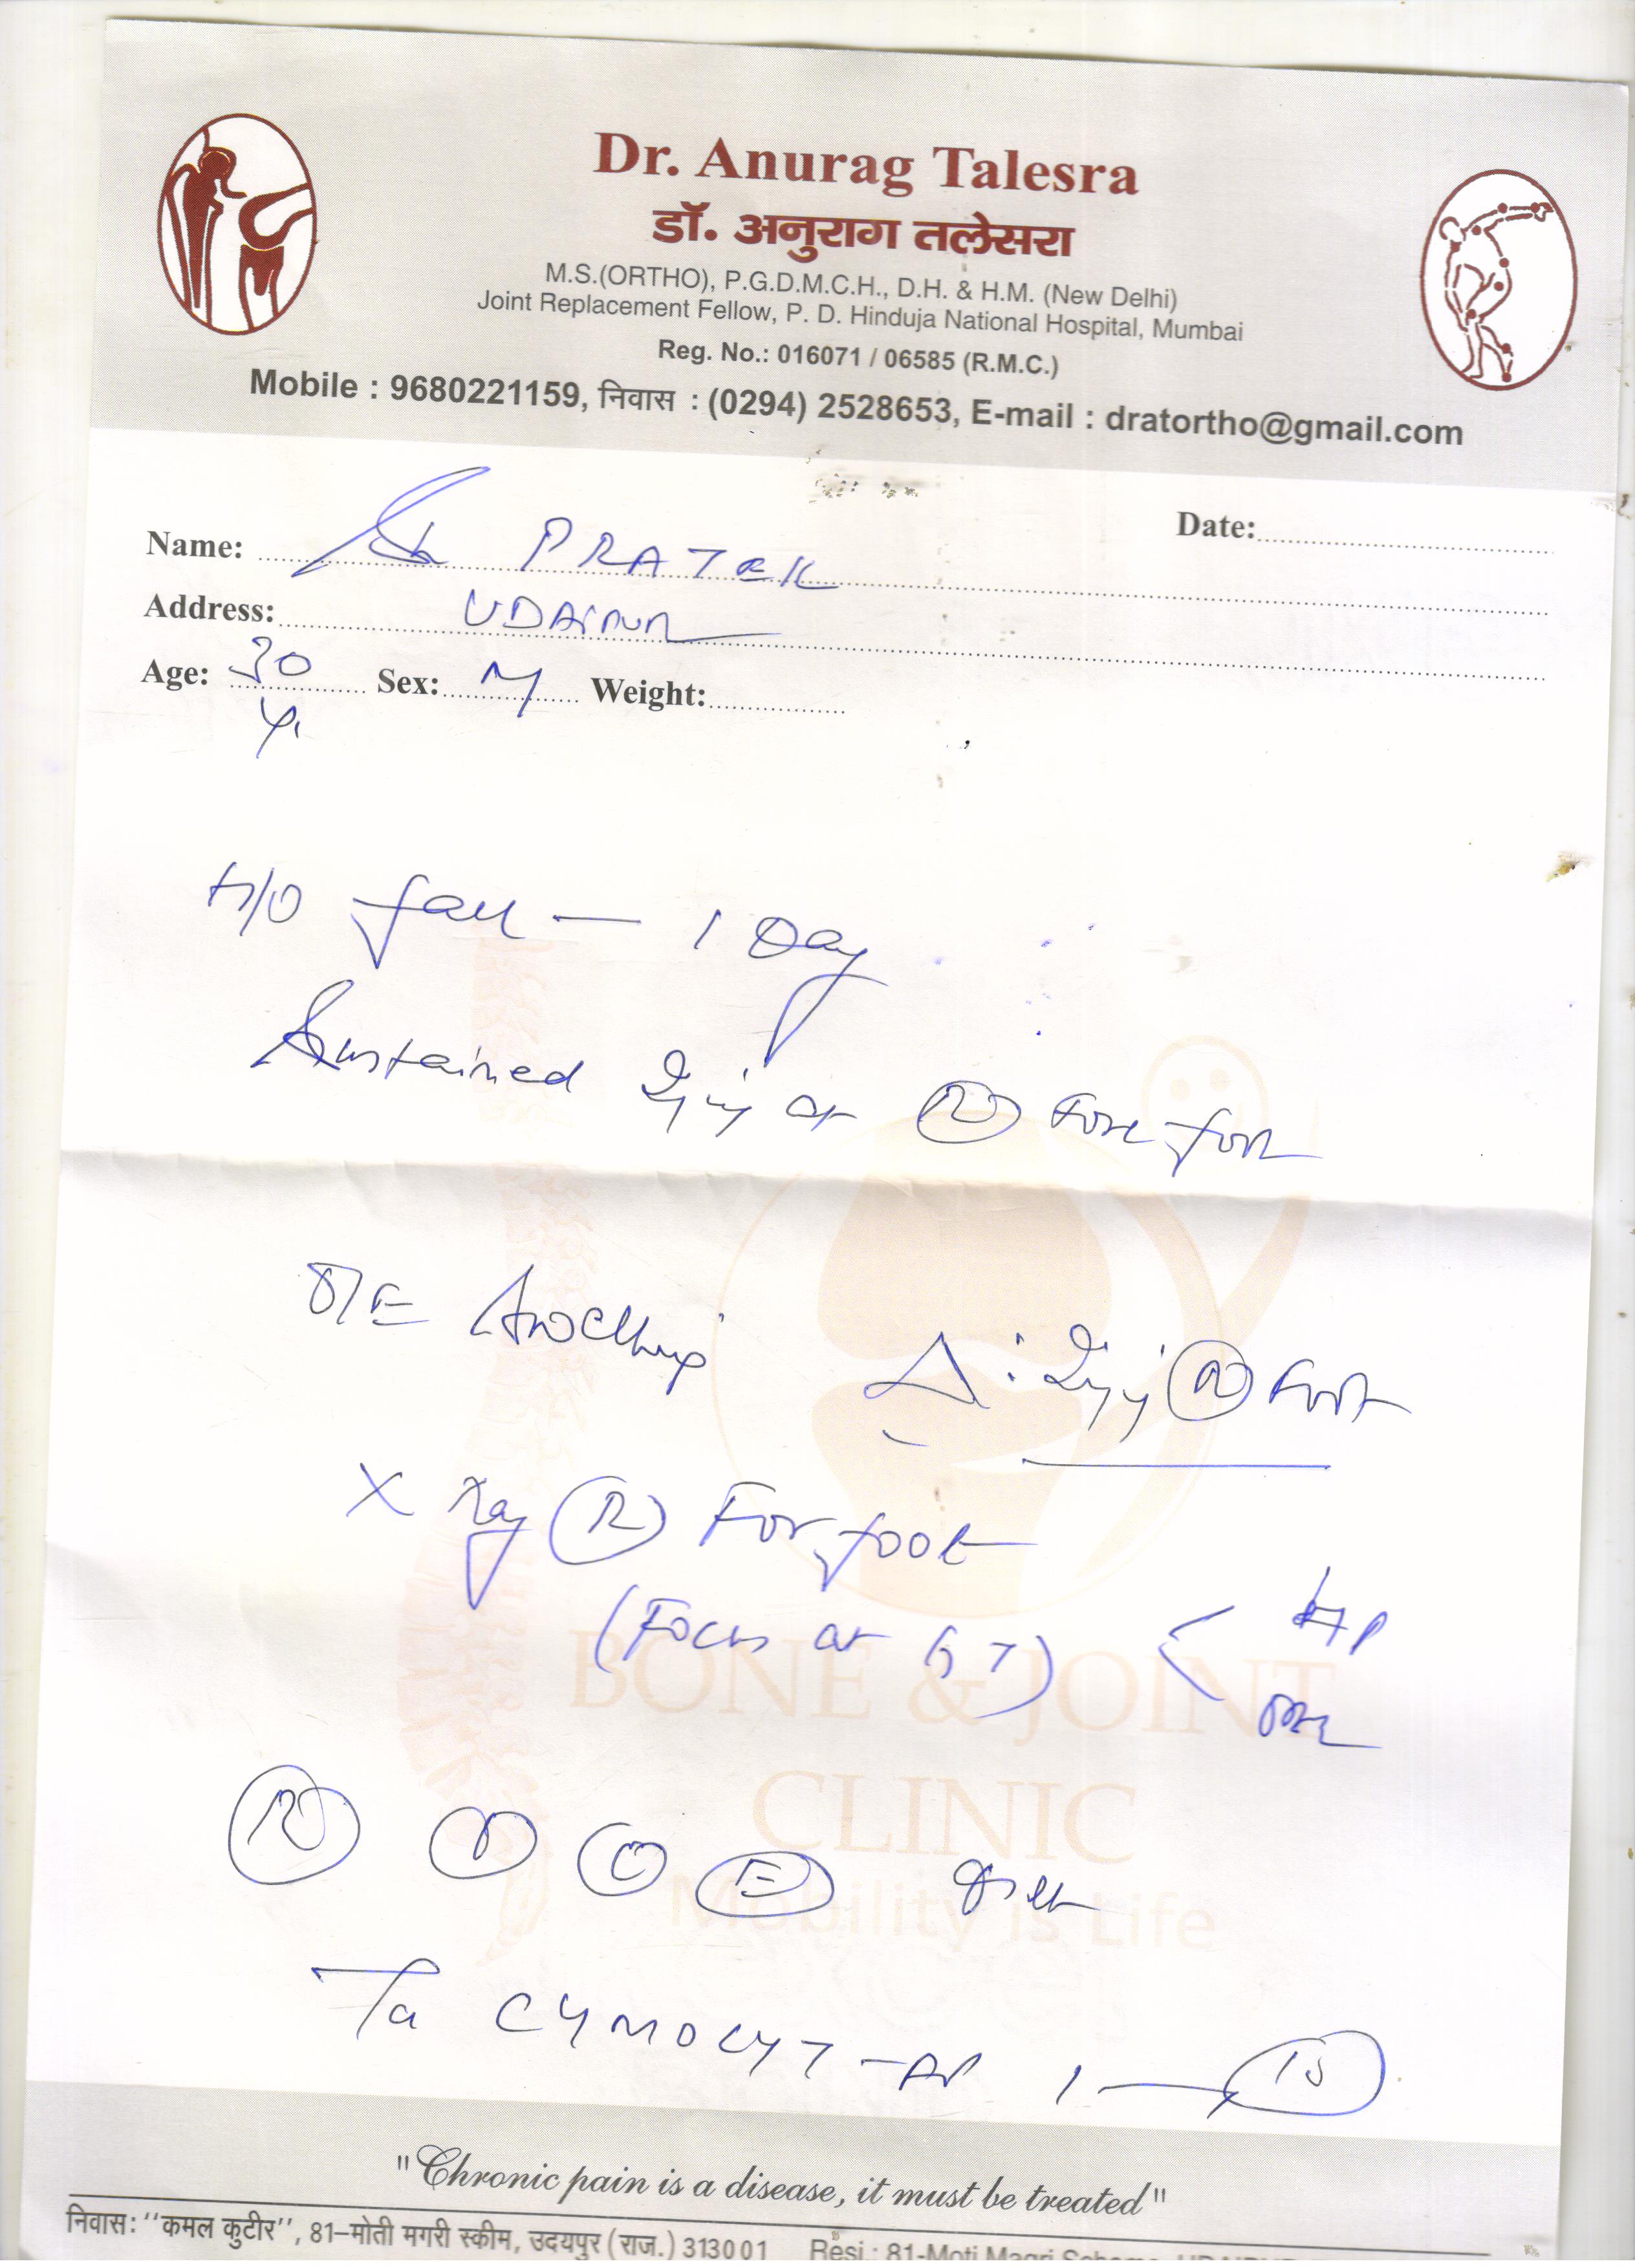 Dr. Anurag Talesra
डॉ. अनुराग तलेसरा
M.S.(ORTHO), P.G.D.M.C.H., D.H. & H.M. (New Delhi)
Joint Replacement Fellow, P. D. Hinduja National Hospital, Mumbai
Reg. No.: 016071 / 06585 (R.M.C.)
Mobile : 9680221159, निवास : (0294) 2528653, E-mail : dratortho@gmail.com
Date:
Name: PRATEK
Address: UDAIPUR
Age: 30 Sex: M Weight:
Yr
H/O fall — 1 Day
Sustained Injury at R Fore foot
O/E Swelling Δ: Injury R Foot
X Ray R Forefoot
(Focus at GT) < AP
R I C E
Ta CYMOCYT-AP 1 —
BONE & JOINT
CLINIC
Mobility is Life
"Chronic pain is a disease, it must be treated"
निवास: ''कमल कुटीर'', 81–मोती मगरी स्कीम, उदयपुर (राज.) 313001 Resi.: 81-Moti Magri Scheme,